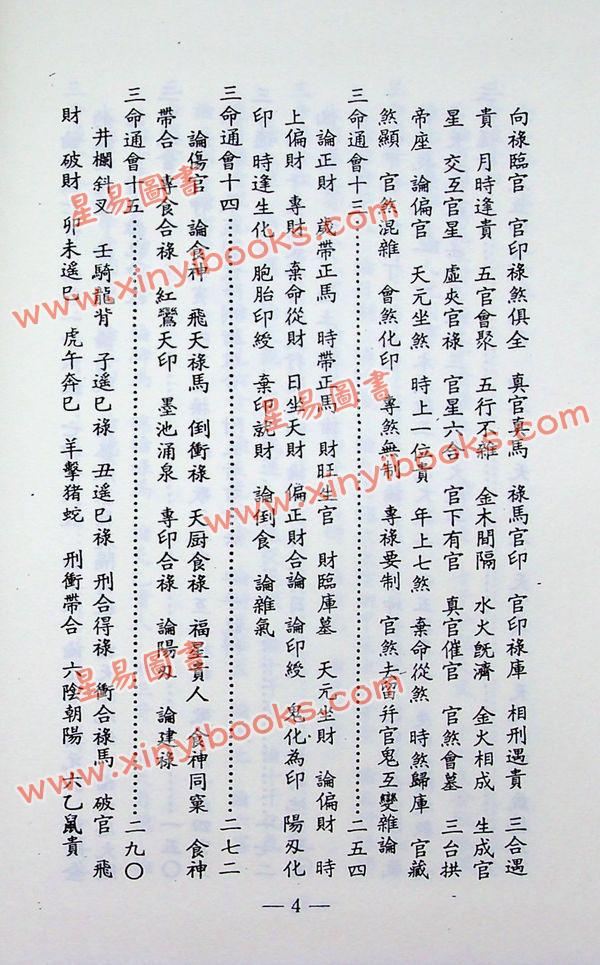 向祿臨官 官印祿煞俱全 真官真馬 祿馬官印 官印祿庫 相刑遇貴 三合遇
貴 月時逢貴 五官會聚 五行不雜 金木間隔 水火旣濟 金火相成 生成官
星 交互官星 虛夾官祿 官星六合 官下有官 真官催官 官煞會墓 三台拱
帝座 論偏官 天元坐煞 時上一位貴 年上七煞 棄命從煞 時煞歸庫 官藏
煞顯 官煞混雜 會煞化印 專煞無制 專祿要制 官煞去留幷官鬼互變雜論
三命通會十三⋯⋯⋯⋯⋯⋯⋯⋯⋯⋯⋯⋯⋯⋯二五四
論正財 歲帶正馬 時帶正馬 財旺生官 財臨庫墓 天元坐財 論偏財 時
上偏財 專財 棄命從財 日坐天財 偏正財合論 論印綬 鬼化為印 陽刃化
印 時逢生化 胞胎印綬 棄印就財 論倒食 論雜氣
三命通會十四⋯⋯⋯⋯⋯⋯⋯⋯⋯⋯⋯⋯⋯⋯二七二
論傷官 論食神 飛天祿馬 倒衝祿 天厨食祿 福星貴人 食神同窠 食神
帶合 專食合祿 紅鸞天印 墨池涌泉 專印合祿 論陽刃 論建祿
三命通會十五⋯⋯⋯⋯⋯⋯⋯⋯⋯⋯⋯⋯⋯⋯二九〇
井欄斜叉 壬騎龍背 子遥巳祿 丑遥巳祿 刑合得祿 衝合祿馬 破官 飛
財 破財 卯未遥巳 虎午奔巳 羊擊猪蛇 刑衝帶合 六陰朝陽 六乙鼠貴
— 4 —
星易圖書
www.xinyibooks.com
星易圖書
www.xinyibooks.com
星易圖書
www.xinyibooks.com